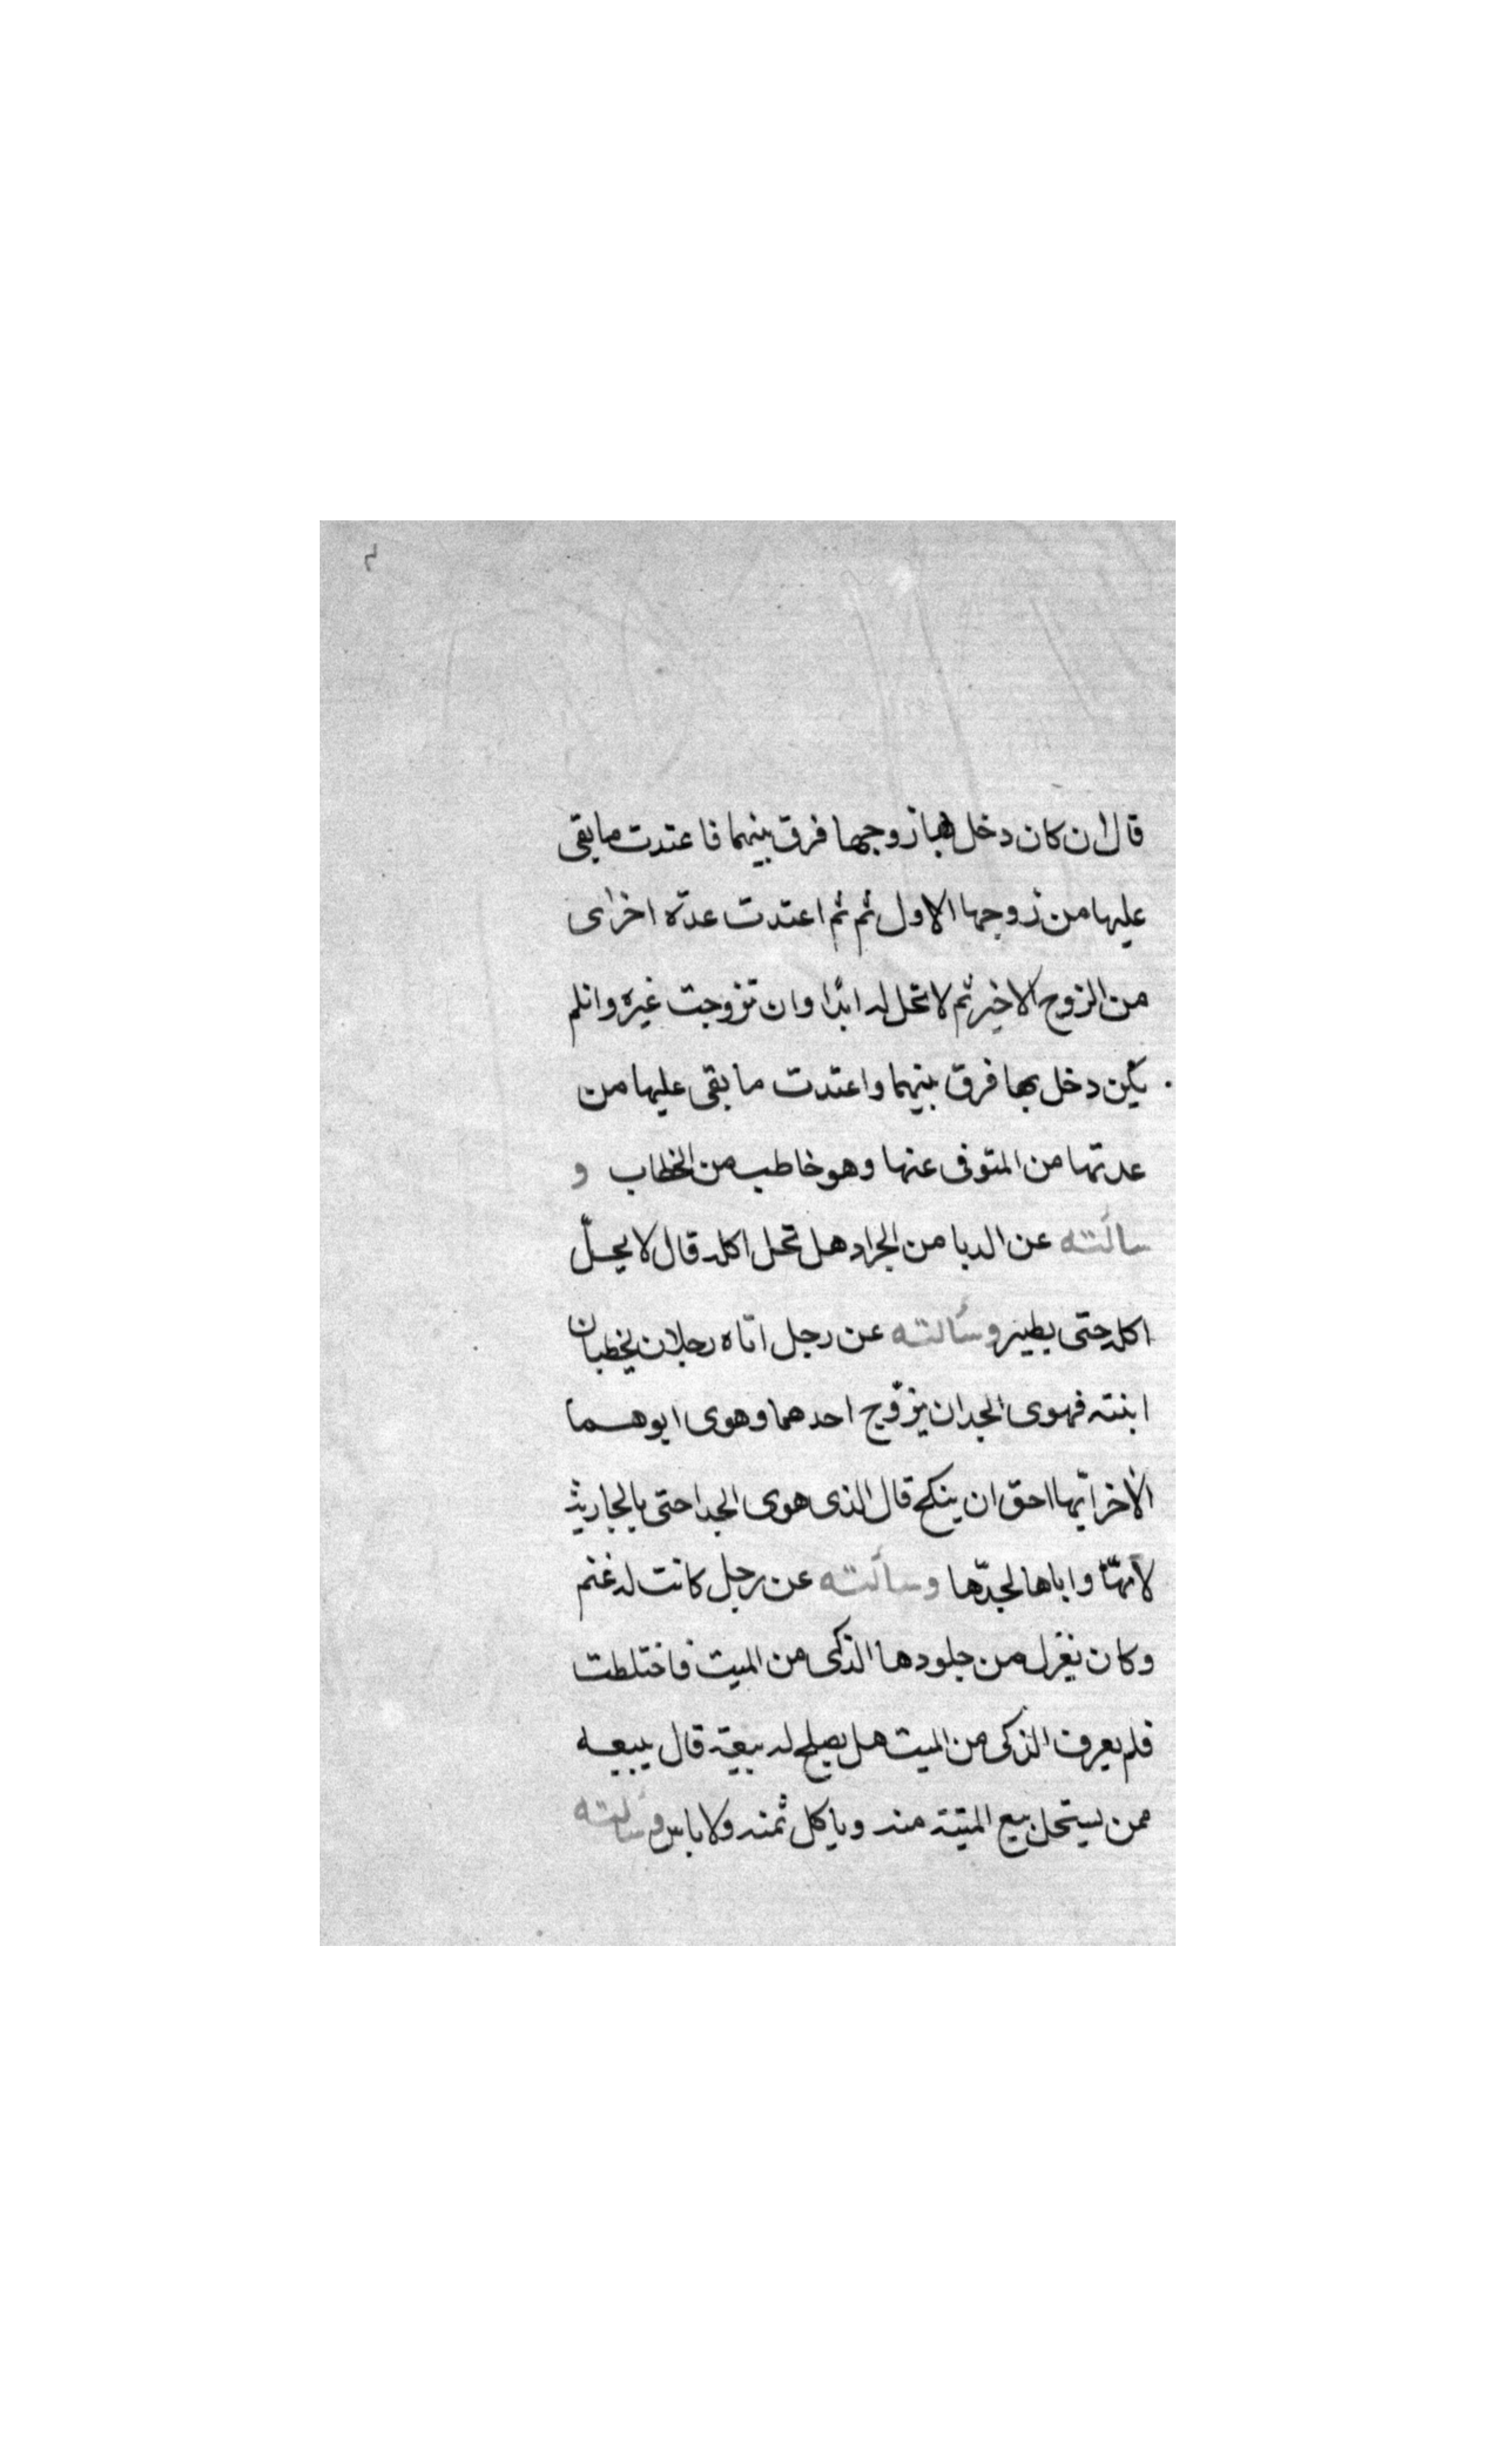 ٣
قال ان كان دخل بها زوجها فرق بينهما فاعتدت ما بقى
عليها من زوجها الاول ثم ثم اعتدت عدّة اخرى
من الزوج الاخير ثم لا تحل له ابدًا وان تزوجت غيره وان لم
يكن دخل بها فرق بينهما واعتدت ما بقى عليها من
عدتها من المتوفى عنها وهو خاطب من الخطاب و
سالته عن الدبا من الجراد هل تحل اكله قال لا يحلّ
اكله حتى يطير وسالته عن رجل اتاه رجلان يخطبان
ابنته فهوى الجد ان يزوّج احدهما وهوى ابوهما
الاخر ايّهما احق ان ينكح قال الذى هوى الجد احق بالجارية
لانّها واباها لجدّها وسالته عن رجل كانت له غنم
وكان يغزل من جلودها الذكى من الميت فاختلطت
فلم يعرف الذكى من الميت هل يصلح له بيعه قال يبيعه
ممن يستحل بيع الميتة منه وياكل ثمنه ولا باس وسالته